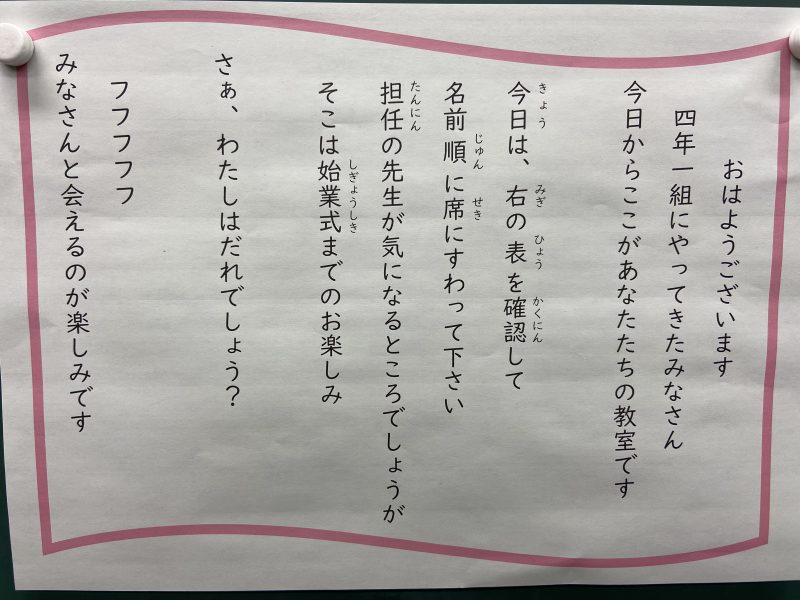 おはようございます
四年一組にやってきたみなさん
今日からここがあなたたちの教室です
今日は、右の表を確認して
きょう みぎ ひょう かくにん
名前順に席にすわって下さい
じゅん せき
担任の先生が気になるところでしょうが
たんにん
そこは始業式までのお楽しみ
しぎょうしき
さぁ、わたしはだれでしょう?
フフフフフ
みなさんと会えるのが楽しみです